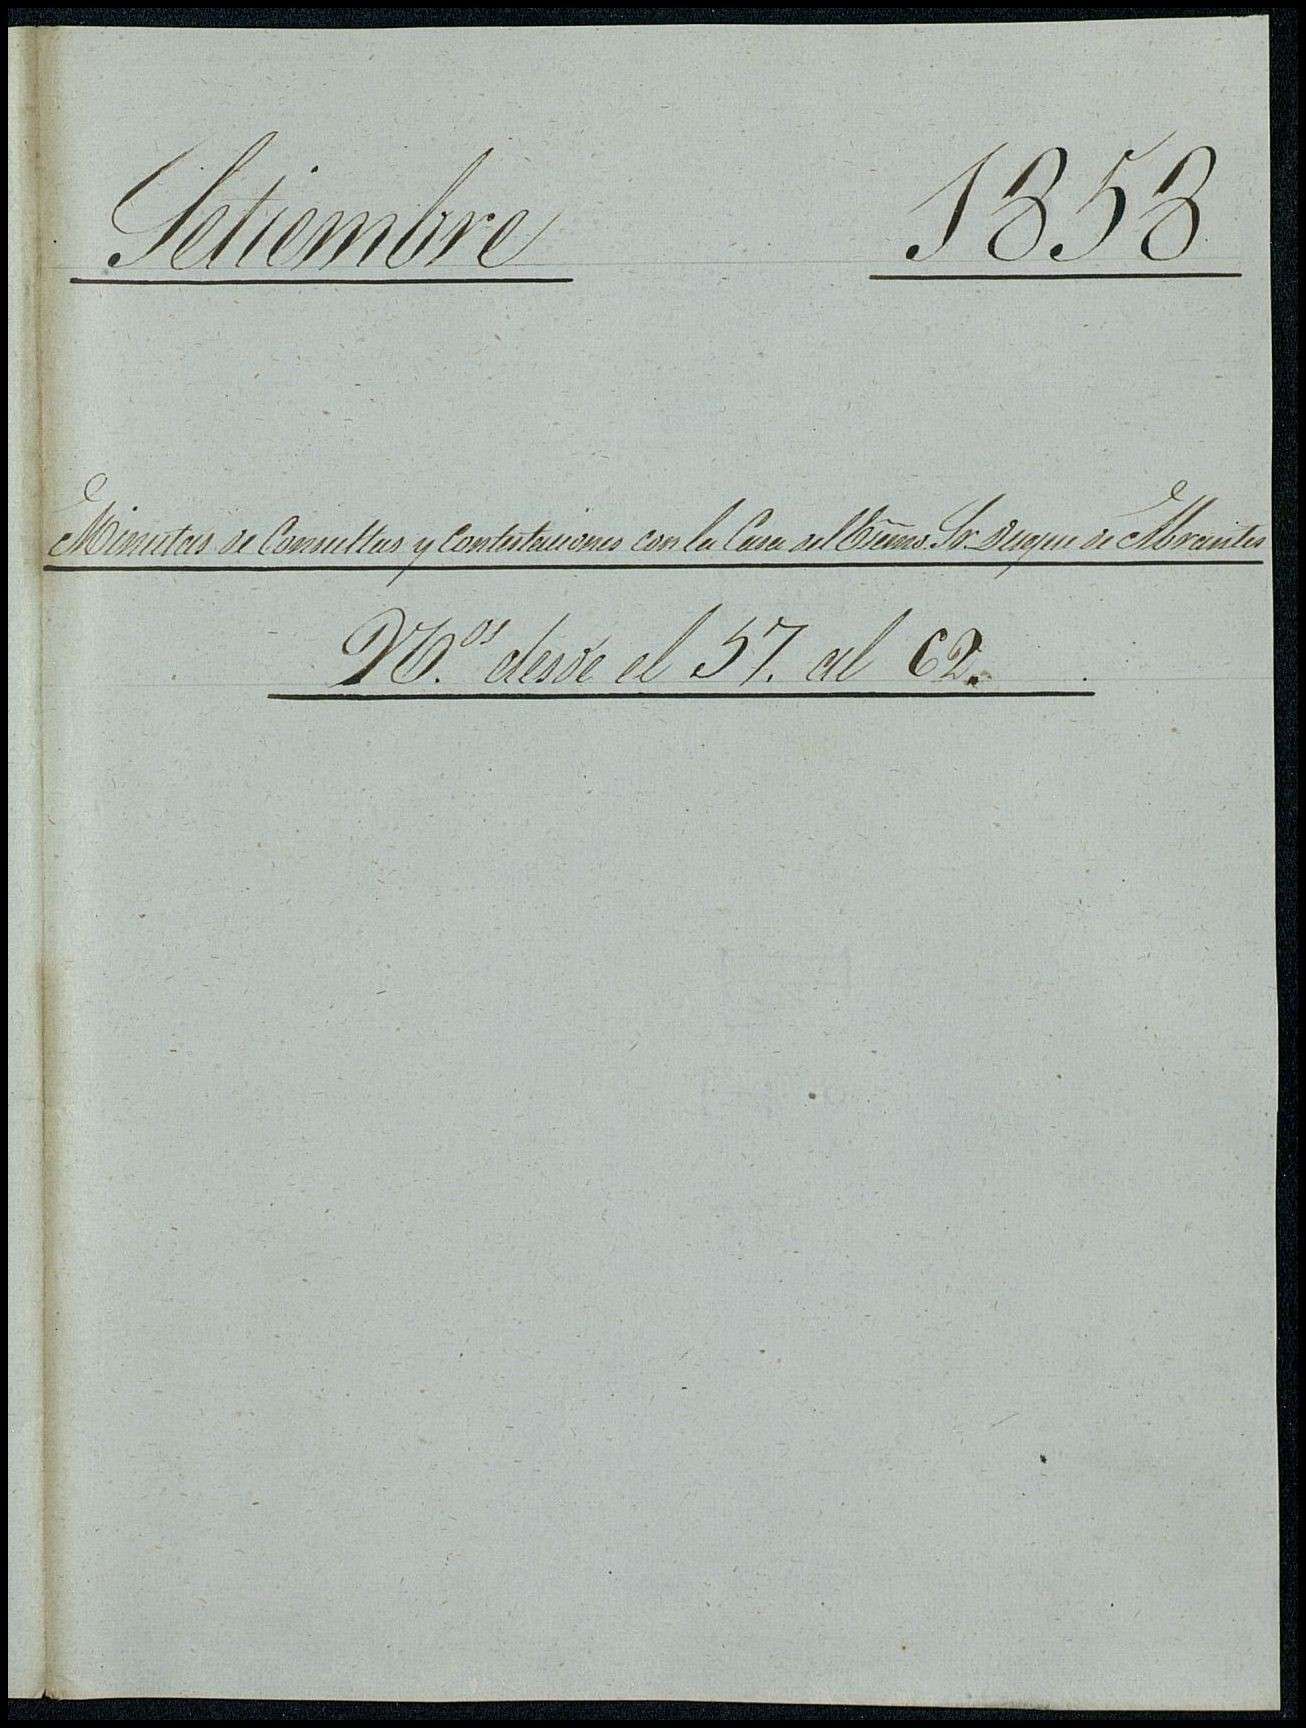 Setiembre 1858
Minutas de Consultas y Contestaciones con la Casa del Eẽmo. Sr. Duque de Abrantes
N.os desde el 57. al 62.